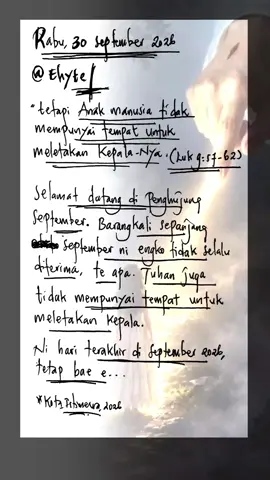 Rabu, 30 September 2026
@ Ehyfe
"tetapi Anak manusia tidak
mempunyai tempat untuk
meletakan Kepala-Nya. (Luk 9:57-62)
Selamat datang di Penghujung
September. Barangkali sepanjang
September ni engko tidak selalu
diterima, te apa. Tuhan juga
tidak mempunyai tempat untuk
meletakan kepala.
Ni hari terakhir di September 2026,
tetap bae e...
*Kota 2026